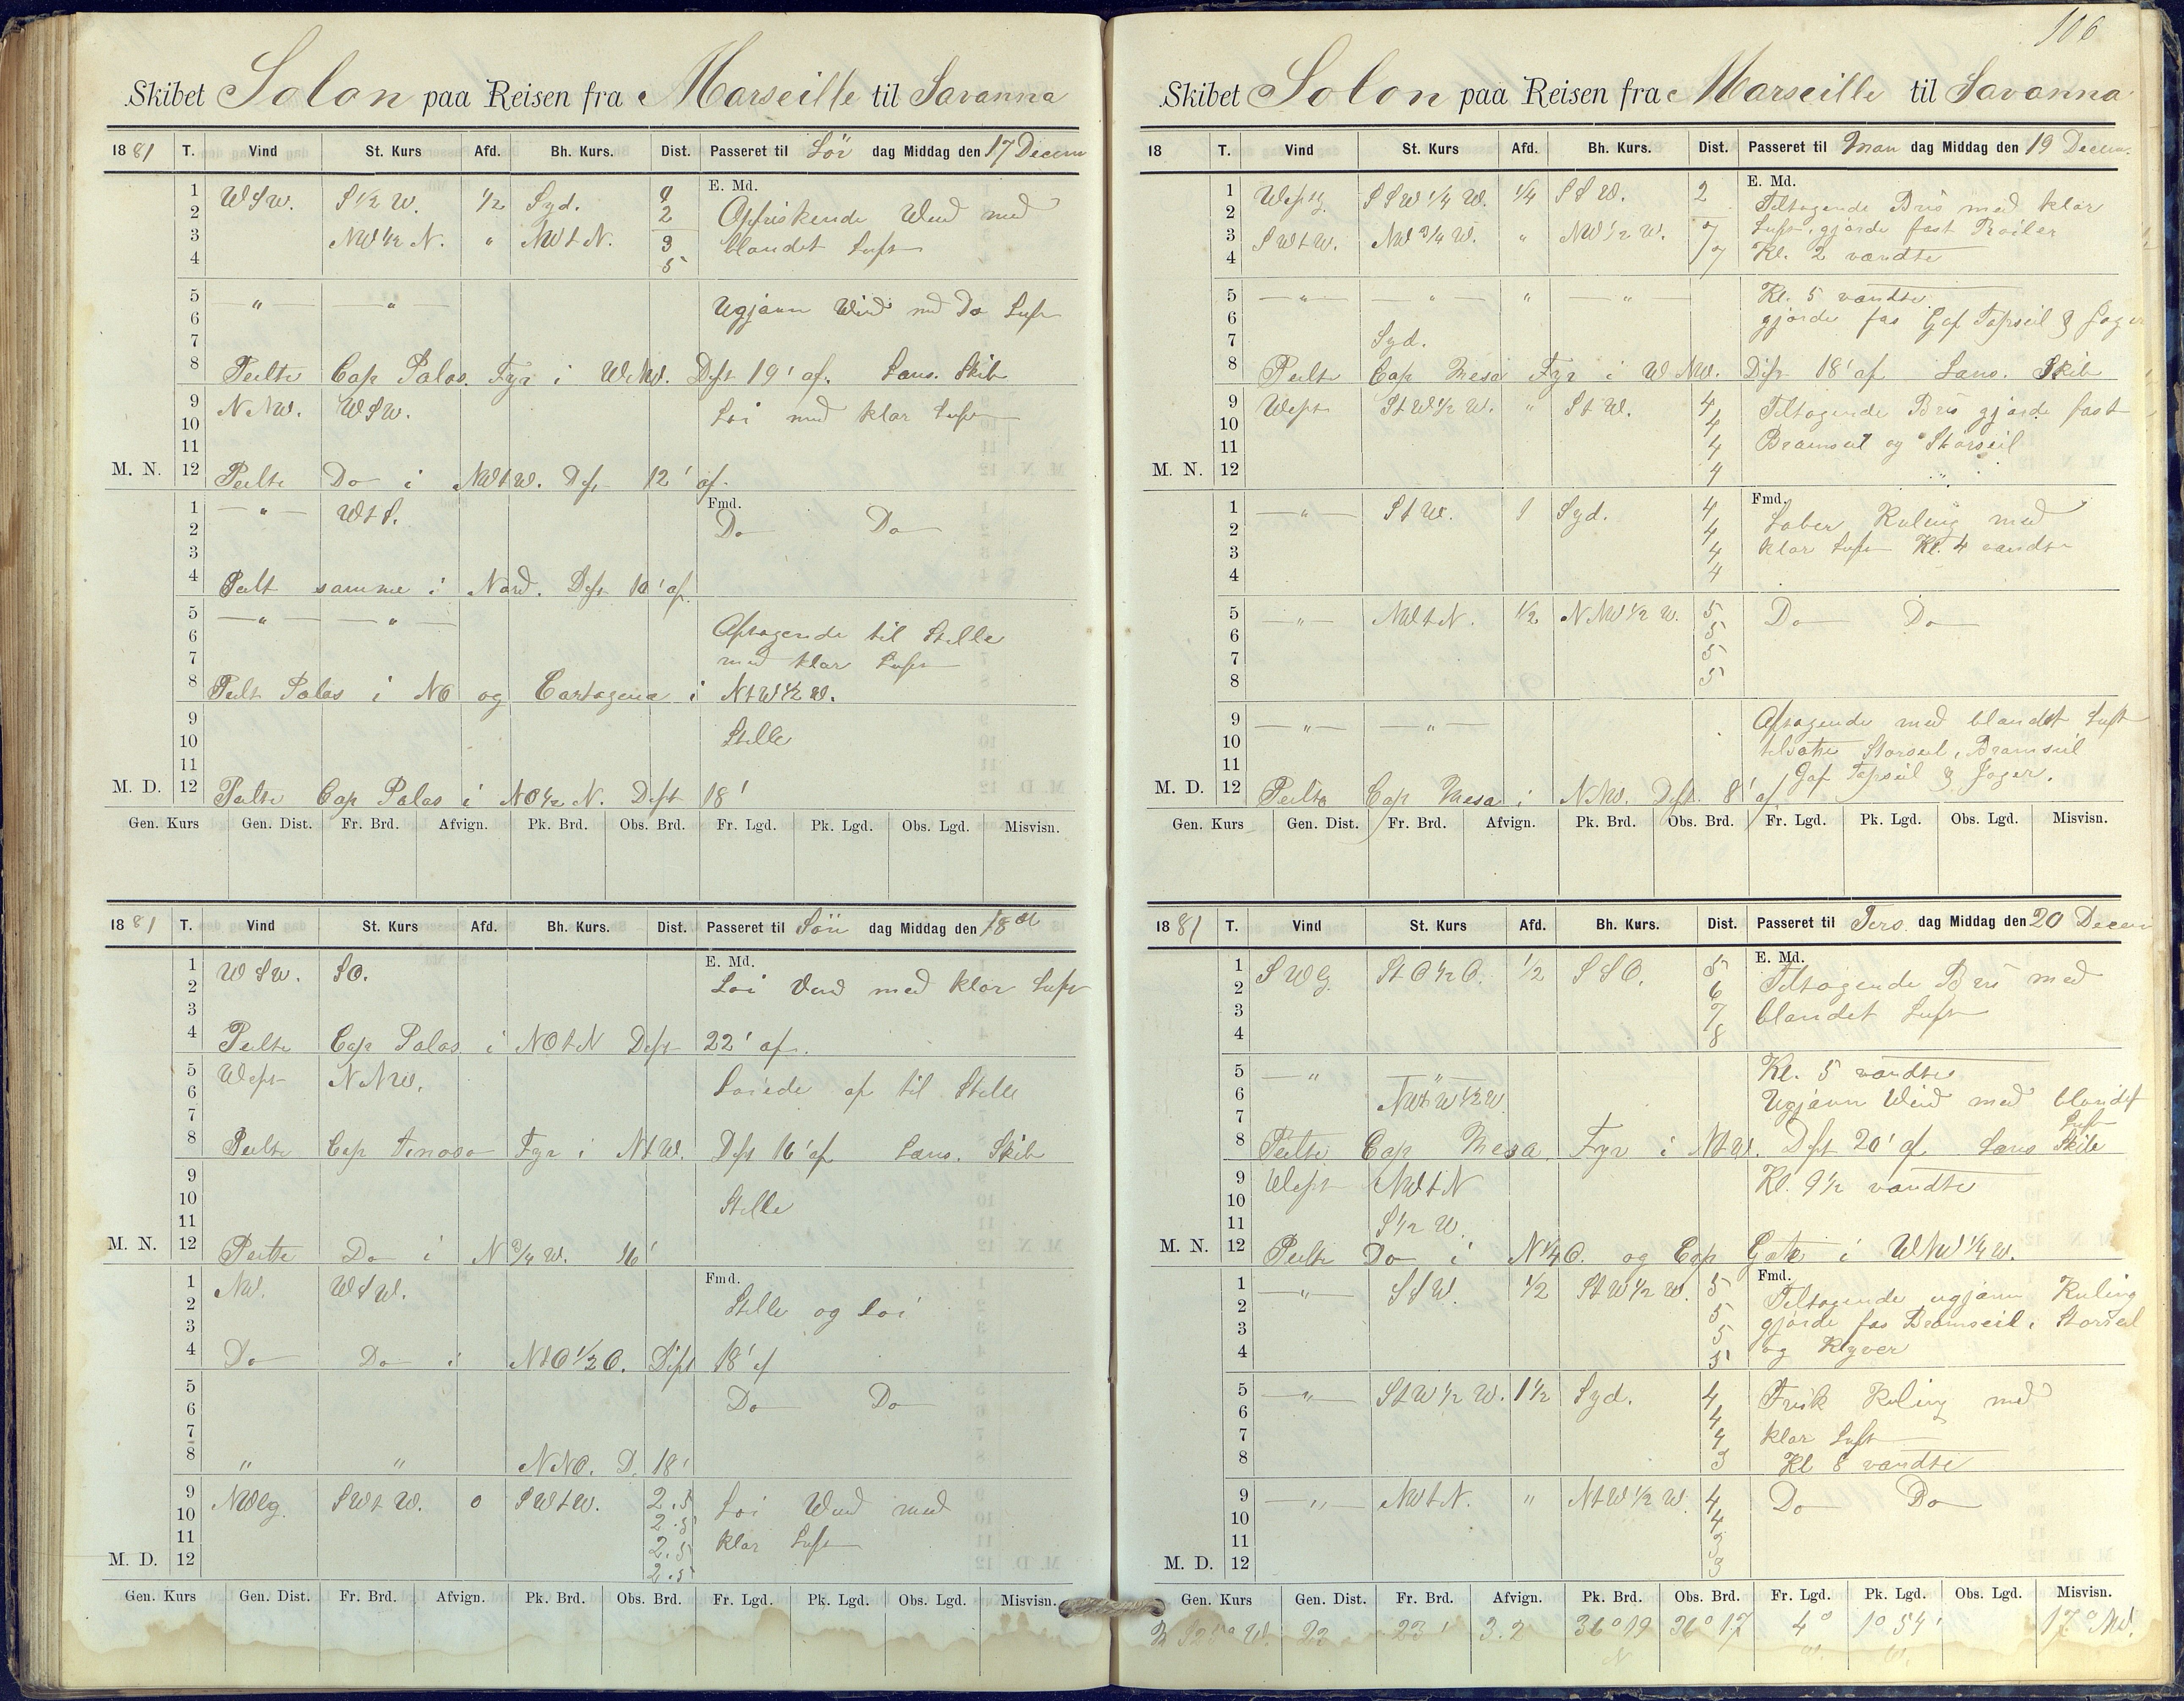 Skibet Solon paa Reisen fra Marseille til Savanna
1881 T. Vind St. Kurs Afd. Bh. Kurs. Dist. Passeret til Lör dag Middag den 17 Decem
E. Md.
1 WSW. S 1/2 W. 1/2 Syd. Opfriskende Wind med
2 2
3 NW 1/2 N. " NWtN. 3 blandet Luft
4 5
5 " " Ugjævn Wind med Do Luft
6
7
8 Peilte Cap Palos Fyr i WNW. Dist 19' af. Lans. Skib
9 NNW. WSW. Löi med klar Luft
10
11
M. N. 12 Peilte Do i NWtW. Dist 12' af.
Fmd.
1 " WtS. Do Do
2
3
4 Peilt samme i Nord. Dist 10' af.
5 " "
6 Aftagende til Stille
7 med klar Luft
8 Peilt Palos i NO og Cartagena i NtW 1/2 W.
9
10 Stille
11
M. D. 12 Peilte Cap Palos i NO 1/2 N. Dist 18'
Gen. Kurs Gen. Dist. Fr. Brd. Afvign. Pk. Brd. Obs. Brd. Fr. Lgd. Pk. Lgd. Obs. Lgd. Misvisn.
1881 T. Vind St. Kurs Afd. Bh. Kurs. Dist. Passeret til Sön dag Middag den 18de
E. Md.
1 WSW. SO.
2 Löi Vind med klar Luft
3
4 Peilte Cap Palos i NOtN Dist 22' af.
5 West NNW.
6 Löiede af til Stille
7
8 Peilte Cap Tinoso Fyr i NtW. Dist 16' af Lans. Skib
9
10 Stille
11
M. N. 12 Peilte Do i N 3/4 W. 16'
Fmd.
1 NW. WSW.
2 Stille og Löi
3
4 Do Do i NtO 1/2 O. Dist 18' af
5
6 Do Do
7
8 " " NNO. D. 18'
9 NWlg. SWtW. 0 SWtW. 2.5 Löi Wind med
10 2.5
11 2.5 klar Luft
M. D. 12 2.5
Gen. Kurs Gen. Dist. Fr. Brd. Afvign. Pk. Brd. Obs. Brd. Fr. Lgd. Pk. Lgd. Obs. Lgd. Misvisn.
106
Skibet Solon paa Reisen fra Marseille til Savanna
18 T. Vind St. Kurs Afd. Bh. Kurs. Dist. Passeret til Man dag Middag den 19 Decem.
E. Md.
1 Westlg. SSW 1/4 W. 1/4 SSW. 2 Tiltagende Bris med klar
2 Luft, gjorde fast Röiler
3 SWtW. NW 3/4 W. " NW 1/2 W. 7 Kl. 2 vændte
4 7
5 " " " " Kl. 5 vændte.
6 gjorde fas Gaf Topseil & Jager
7 Syd.
8 Peilte Cap Mesa Fyr i WNW. Dist 18' af Lans. Skib
9 West StW 1/2 W. " StW. 4 Tiltagende Bris gjorde fast
10 4
11 4 Bramseil og Storseil
M. N. 12 4
Fmd.
1 " StW. 1 Syd. 4 Laber Kuling med
2 4
3 4 klar Luft Kl. 4 vændte
4 4
5 " NWtN. 1/2 NNW 1/2 W. 5 Do Do
6 5
7 5
8 5
9 " " Aftagende med blandet Luft
10 tilsatte Storseil, Bramseil
11 Gaf Topseil & Jager.
M. D. 12 Peilte Cap Mesa i NNW. Dist. 8' af
Gen. Kurs Gen. Dist. Fr. Brd. Afvign. Pk. Brd. Obs. Brd. Fr. Lgd. Pk. Lgd. Obs. Lgd. Misvisn.
1881 T. Vind St. Kurs Afd. Bh. Kurs. Dist. Passeret til Tirs dag Middag den 20 Decem
E. Md.
1 SWlg. StO 1/2 O. 1/2 SSO. 5 Tiltagende Bris med
2 6
3 7 blandet Luft
4 8
5 " " Kl. 5 vændte
6 NWtW 1/2 W. Ugjævn Wind med blandet
7 Luft
8 Peilte Cap Mesa Fyr i NtW. Dist 20' af Lans Skib
9 West NWtN Kl. 9 1/2 vændte
10
11 S 1/2 W.
M. N. 12 Peilte Do i N 1/4 O. og Cap Gata i WNW 1/4 W.
Fmd.
1 " SSW. 1/2 StW 1/2 W. 5 Tiltagende ugjævn Kuling
2 5
3 5 gjorde fas Bramseil, Storseil
4 5 og Klyver
5 " StW 1/2 W. 1 1/2 Syd. 4 Frisk Kuling med
6 4
7 4 klar Luft
8 3 Kl 8 vændte
9 " NWtN. " NtW 1/2 W. 4 Do Do
10 4
11 3
M. D. 12 3
Gen. Kurs Gen. Dist. Fr. Brd. Afvign. Pk. Brd. Obs. Brd. Fr. Lgd. Pk. Lgd. Obs. Lgd. Misvisn.
22 23' 3.2 36°19 36°17 4° 1°54' 17° NW.
N W. W.